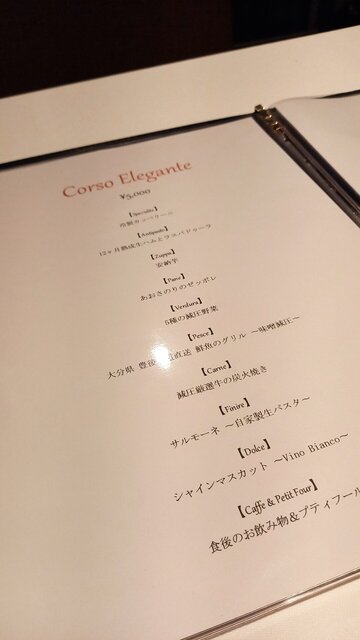 Corso Elegante
¥5,000
【Speciale】
冷製カッペリーニ
【Antipasto】
12ヶ月熟成生ハムとラスパドゥーラ
【Zuppa】
安納芋
【Pane】
あおさのりのゼッポレ
【Verdura】
5種の減圧野菜
【Pesce】
大分県 豊後 直送 鮮魚のグリル ～味噌減圧～
【Carne】
減圧厳選牛の炭火焼き
【Finire】
サルモーネ ～自家製生パスタ～
【Dolce】
シャインマスカット ～Vino Bianco～
【Caffe & Petit Four】
食後のお飲み物&プティフール